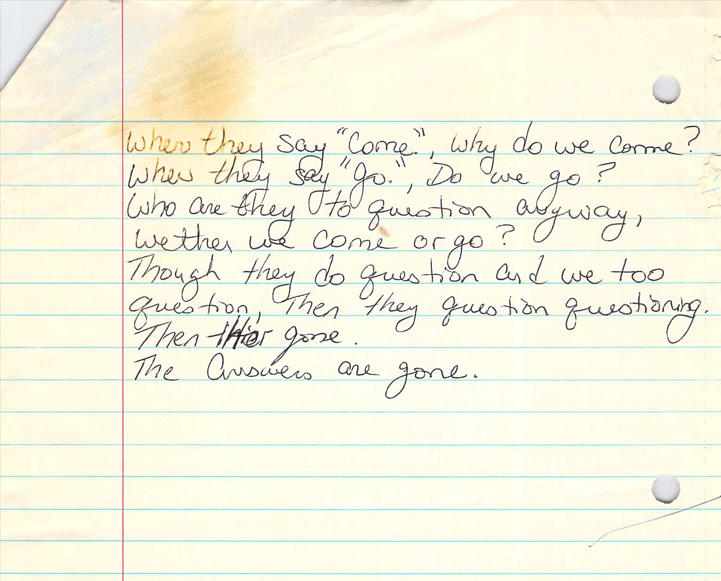 When they say "Come.", Why do we come?
When they say "go.", Do we go?
Who are they to question anyway,
wether we come or go?
Though they do question and we too
question, Then they question questioning.
Then gone.
The Answers are gone.